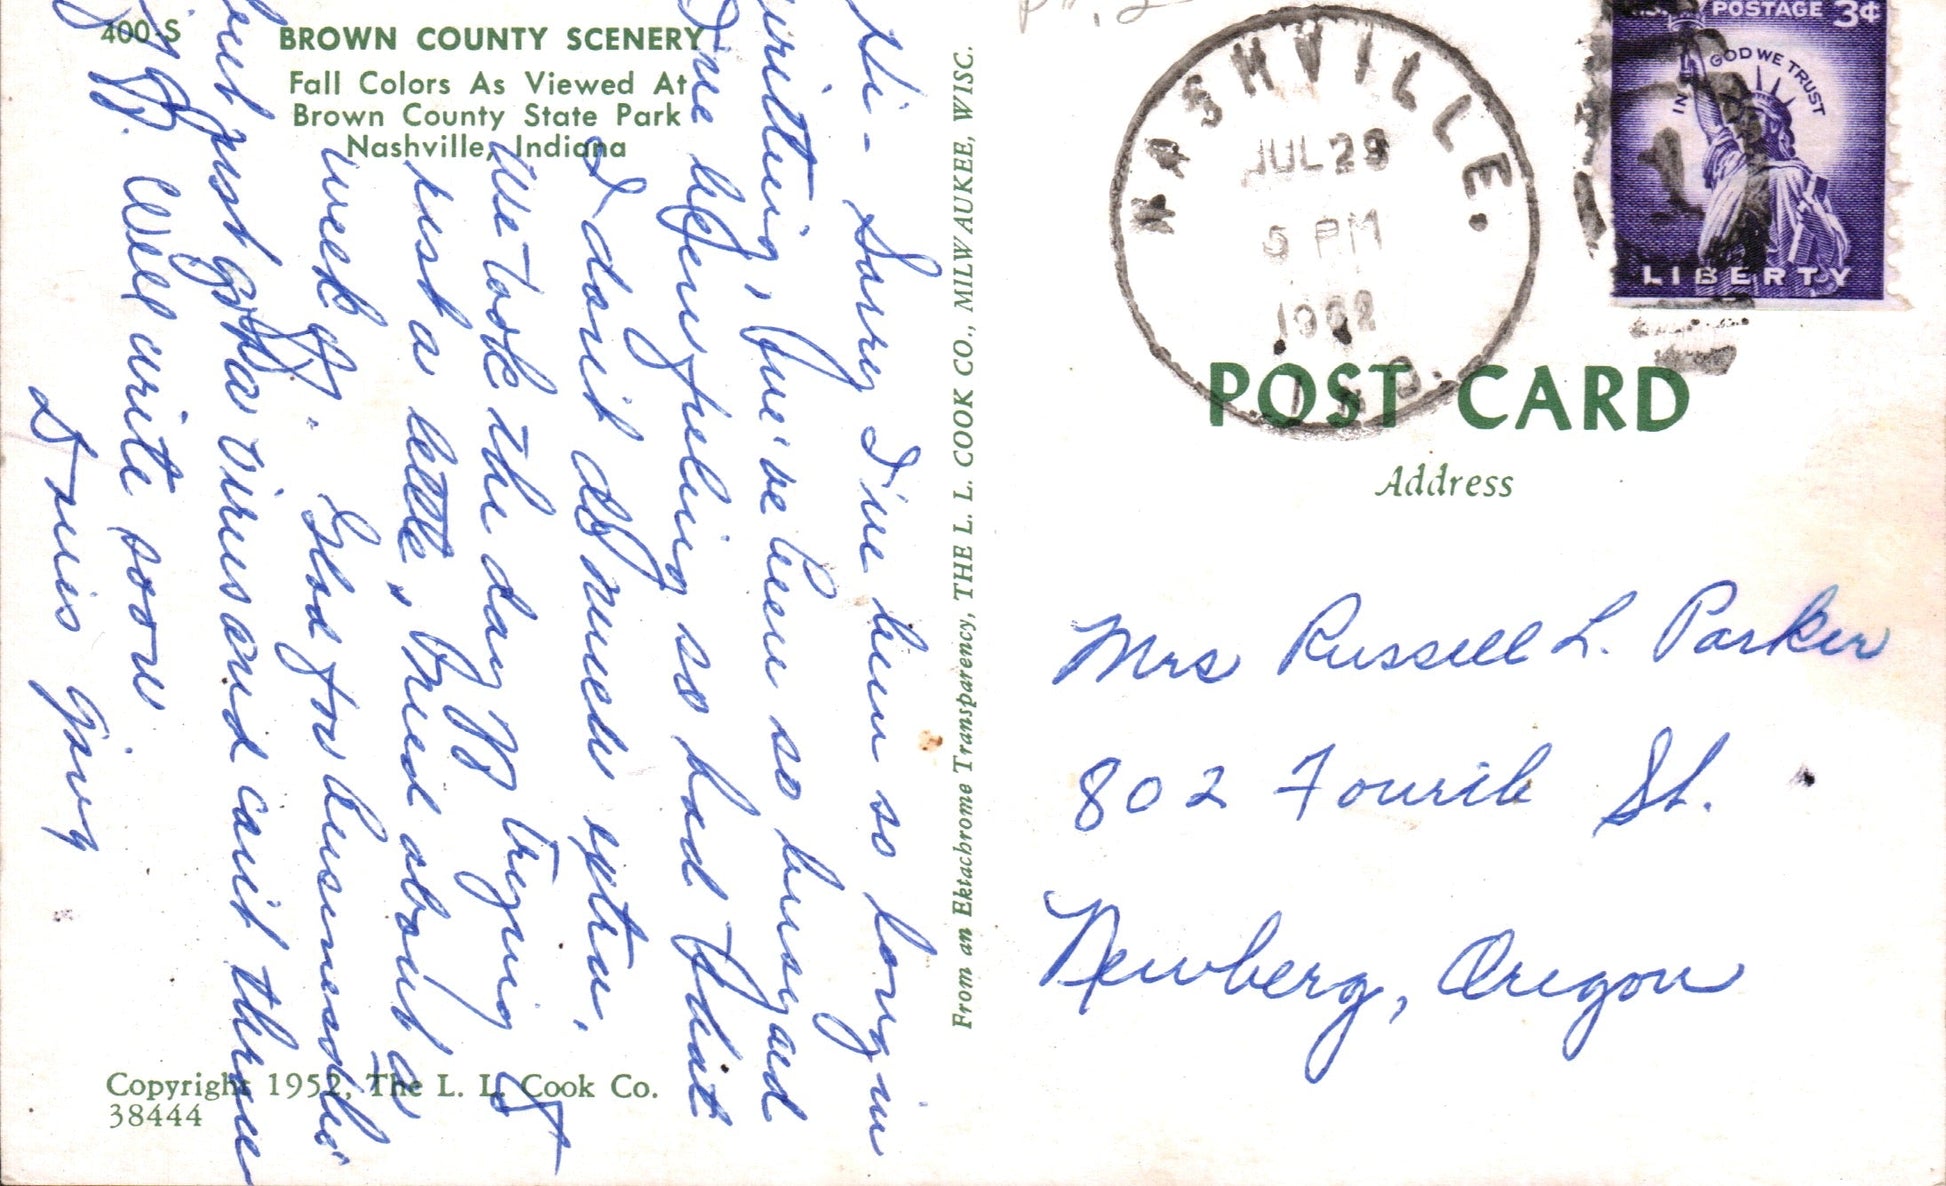 400-S
BROWN COUNTY SCENERY
Fall Colors As Viewed At
Brown County State Park
Nashville, Indiana
Hi - Sorry I've been so long in
writting, but I've been so busy and
I've been feeling so bad that
I don't do much extra.
We took the day off trying to
rest a little, tried about a
week off. Glad for business tho
but just got a virus and can't throw
it off. Will write soon
Copyright 1952, The L. L. Cook Co.
38444
From an Ektachrome Transparency, THE L. L. COOK CO., MILWAUKEE, WISC.
NASHVILLE.
JUL 29
5 PM
1962
IND.
POSTAGE 3¢
IN GOD WE TRUST
LIBERTY
POST CARD
Address
Mrs Russell L. Parker
802 Fourth St.
Newberg, Oregon